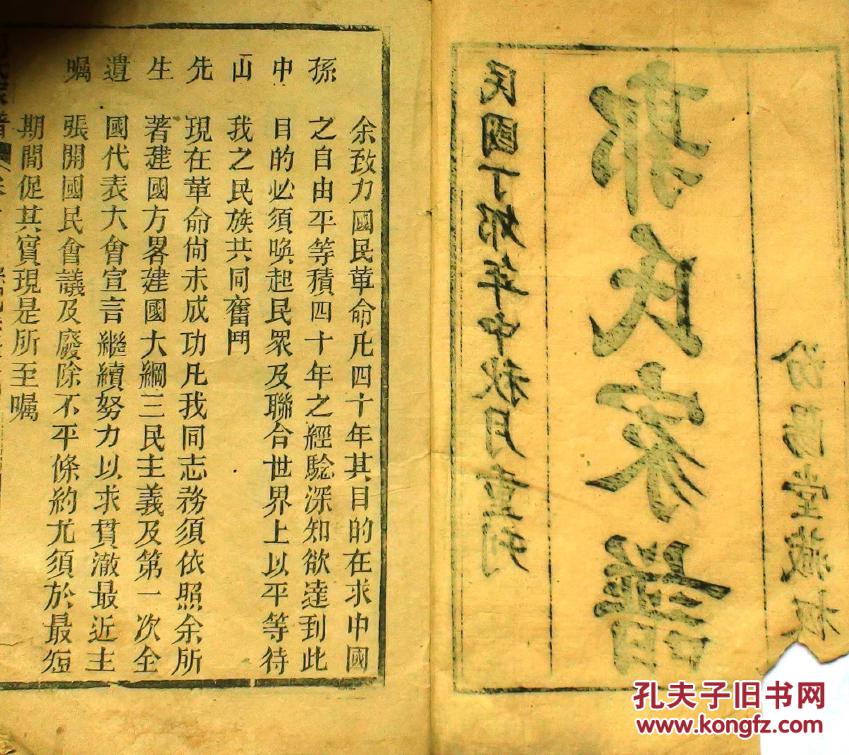 民國丁卯年中秋月重刊
郭氏家譜
汾陽堂藏板
孫中山先生遺囑
余致力國民革命凡四十年其目的在求中國
之自由平等積四十年之經騐深知欲達到此
目的必須喚起民眾及聯合世界上以平等待
我之民族共同奮鬥
現在革命尙未成功凡我同志務須依照余所
著建國方畧建國大綱三民主義及第一次全
國代表大會宣言繼續努力以求貫澈最近主
張開國民會議及廢除不平條約尤須於最短
期間促其實現是所至囑
孔夫子旧书网
www.kongfz.com